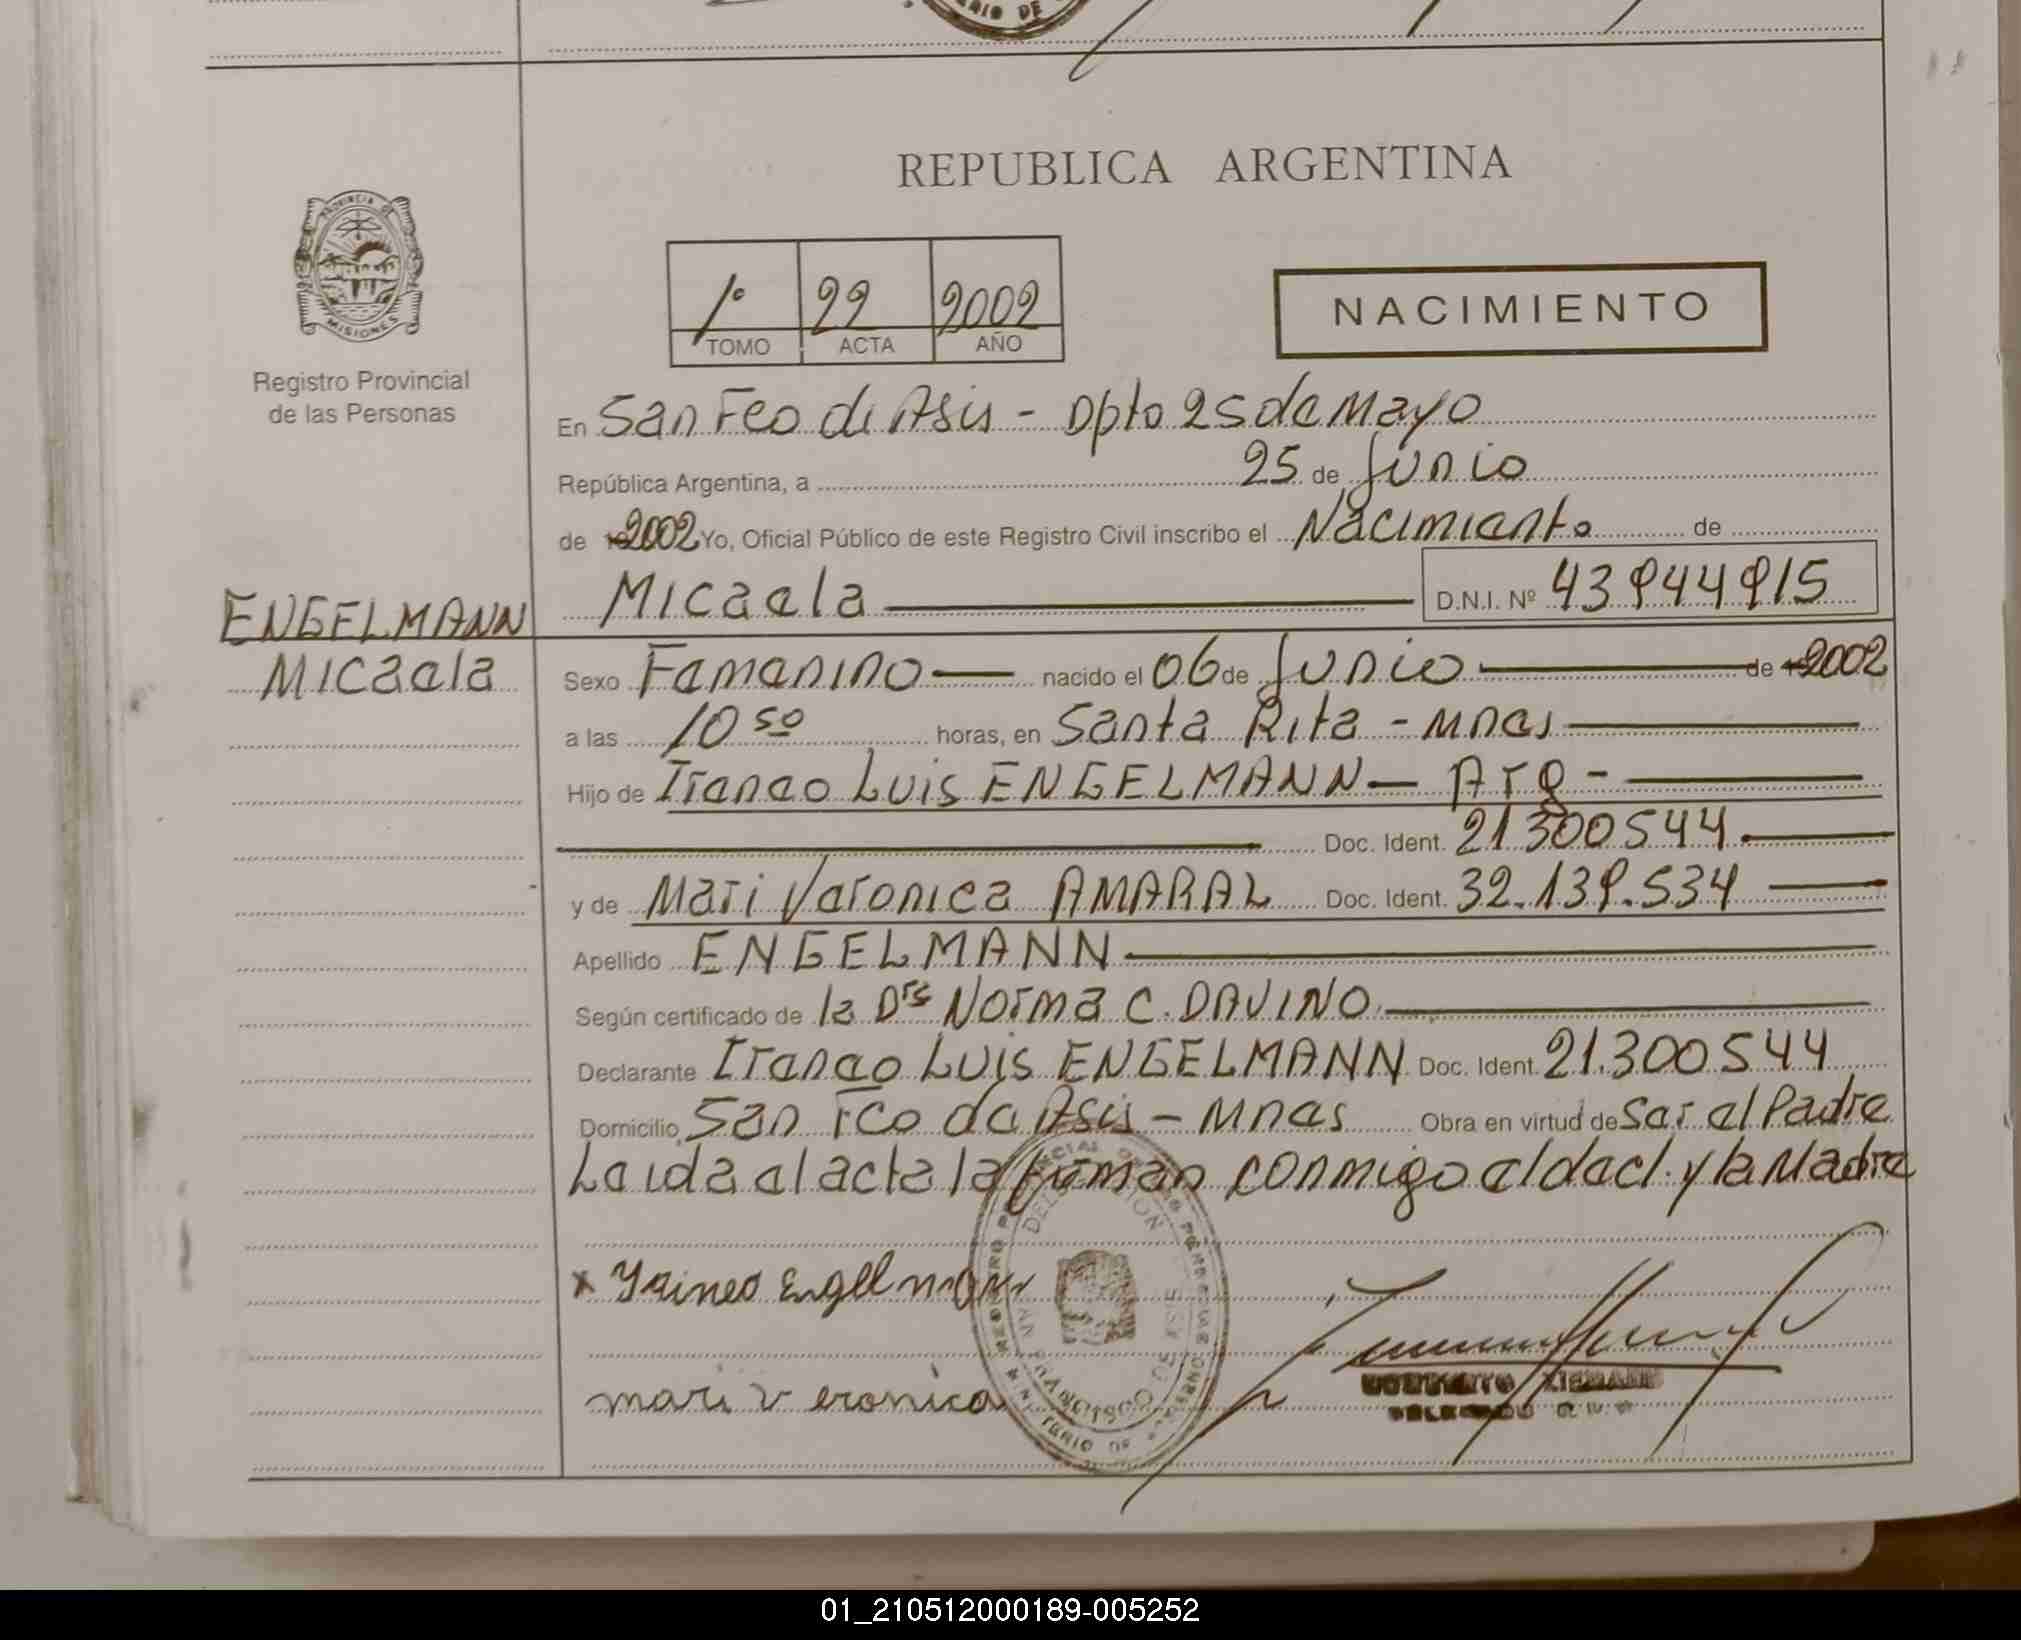 REPUBLICA ARGENTINA
PROVINCIA DE
MISIONES
Registro Provincial
de las Personas
1° 22 2002
TOMO ACTA AÑO
NACIMIENTO
En San Fco de Asis - Dpto 25 de Mayo
República Argentina, a 25 de Junio
de 2002 Yo, Oficial Público de este Registro Civil inscribo el Nacimiento de
Micaela D.N.I. Nº 43944915
ENGELMANN
Micaela
Sexo Femenino nacido el 06 de Junio de 2002
a las 10 50 horas, en Santa Rita - Mnes
Hijo de Ireneo Luis ENGELMANN - Arg -
Doc. Ident. 21300544
y de Mari Veronica AMARAL Doc. Ident. 32.139.534
Apellido ENGELMANN
Según certificado de la Dra Norma C. DAVINO
Declarante Ireneo Luis ENGELMANN Doc. Ident. 21.300544
Domicilio San Fco de Asis - Mnes Obra en virtud de Ser el Padre
Leida el acta la firman conmigo el decl. y la Madre
x Yrineo Engelmann
mari veronica
01_210512000189-005252